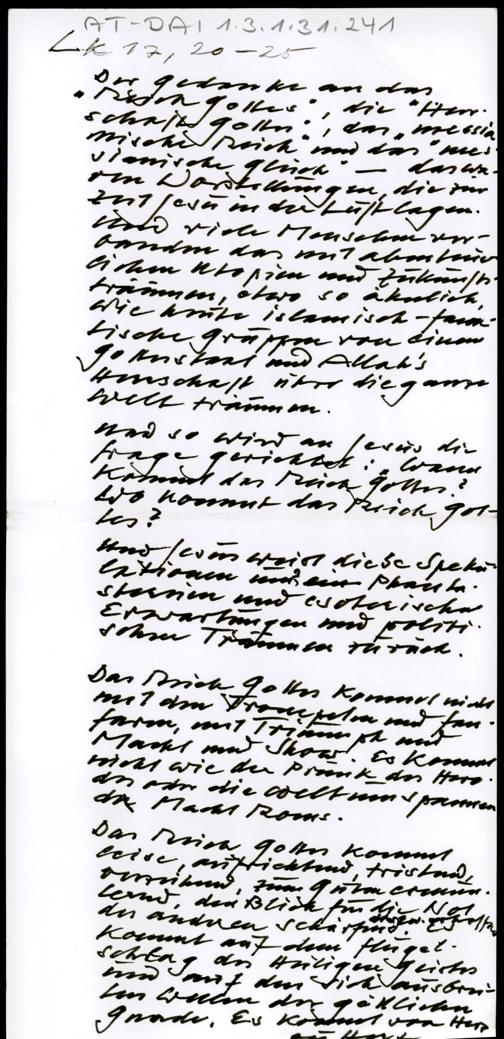 AT-DAI 1.3.1.31.241
Lk 17, 20-25
Der Gedanke an das
"Reich Gottes", die "Herr-
schaft Gottes", das "messia-
nische Reich" und das "mes-
sianische Glück" — das wa-
ren Vorstellungen, die zur
Zeit Jesu in der Luft lagen.
Und viele Menschen ver-
banden das mit abenteuer-
lichen Utopien und Zukunfts-
träumen, etwa so ähnlich,
wie heute islamisch-fana-
tische Gruppen von einem
Gottesstaat und Allah's
Herrschaft über die ganze
Welt träumen.
Und so wird an Jesus die
Frage gerichtet: "Wann
kommt das Reich Gottes?
Wo kommt das Reich Got-
tes?
Und Jesus weist diese Speku-
lationen und Phanta-
stereien und esoterischen
Erwartungen und politi-
schen Träumen zurück.
Das Reich Gottes kommt nicht
mit den Trompeten und Fan-
faren, mit Triumph und
Macht und Show. Es kommt
nicht wie der Prunk des Hero-
des oder die weltumspannende
Macht Roms.
Das Reich Gottes kommt
leise, aufrichtend, tröstend,
verzeihend, zum Guten ermun-
ternd, den Blick für die Not
des anderen schärfend. Es
kommt auf dem Flügel-
schlag des Heiligen Geistes
und auf den sich ausbrei-
tenden Wellen der göttlichen
Gnade. Es kommt von Herz
zu Herz